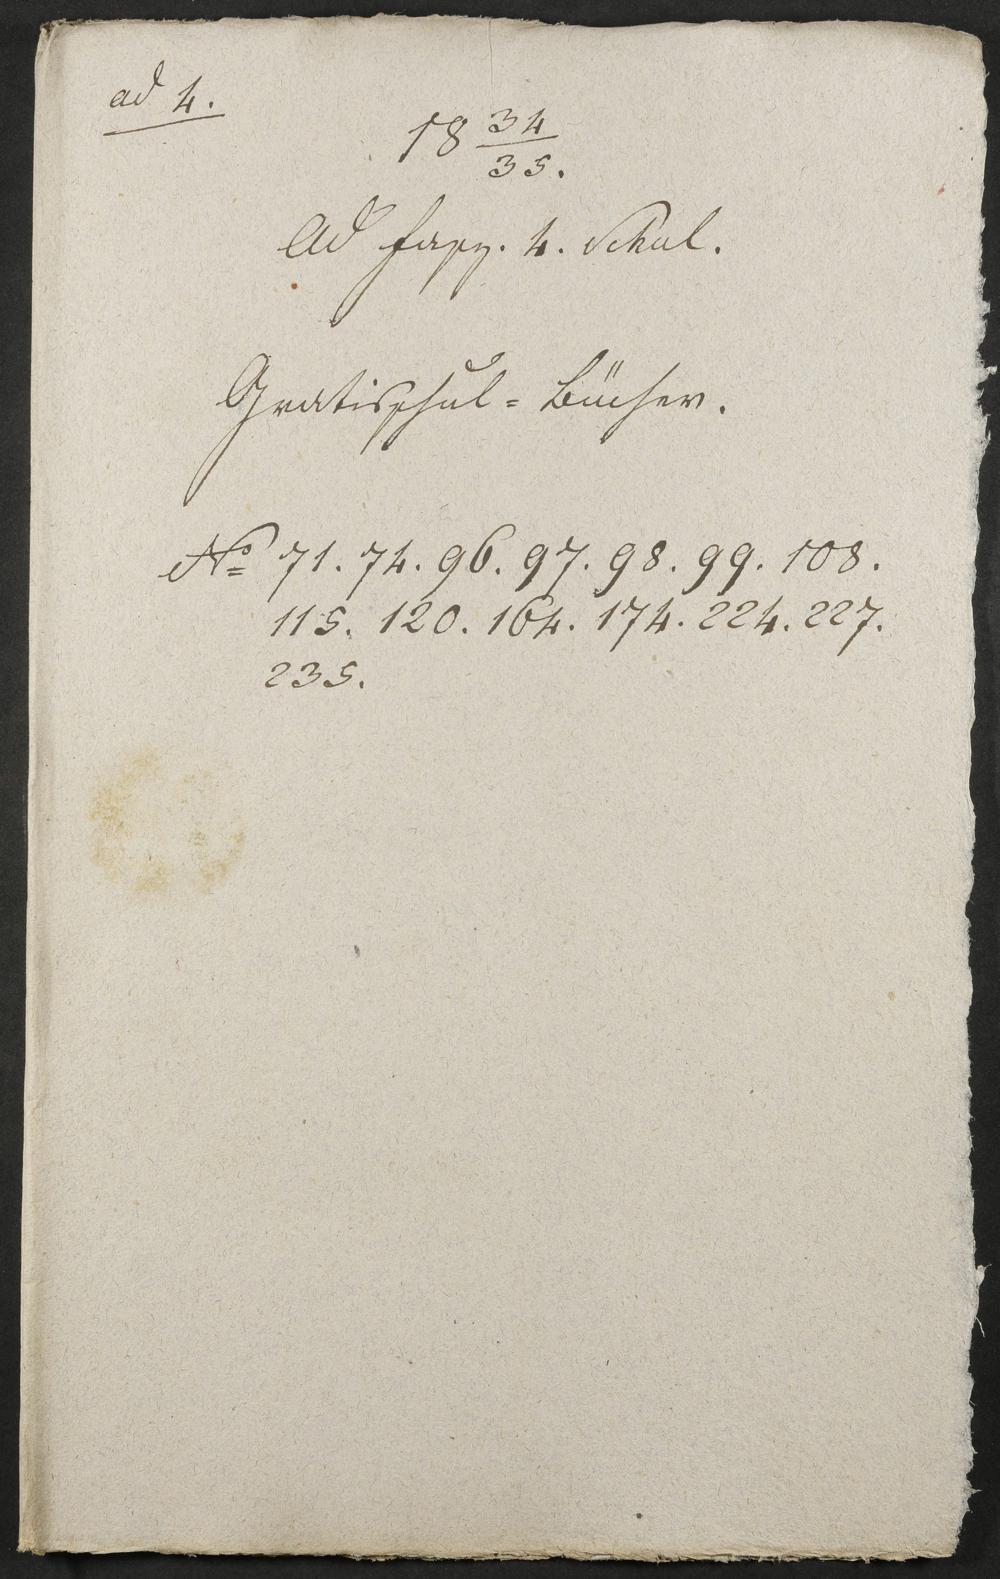 ad 4.
18 34/35.
Ad Fasz. 4. Schul.
Gratisschul = Bücher.
No 71. 74. 96. 97. 98. 99. 108.
115. 120. 164. 174. 224. 227.
235.